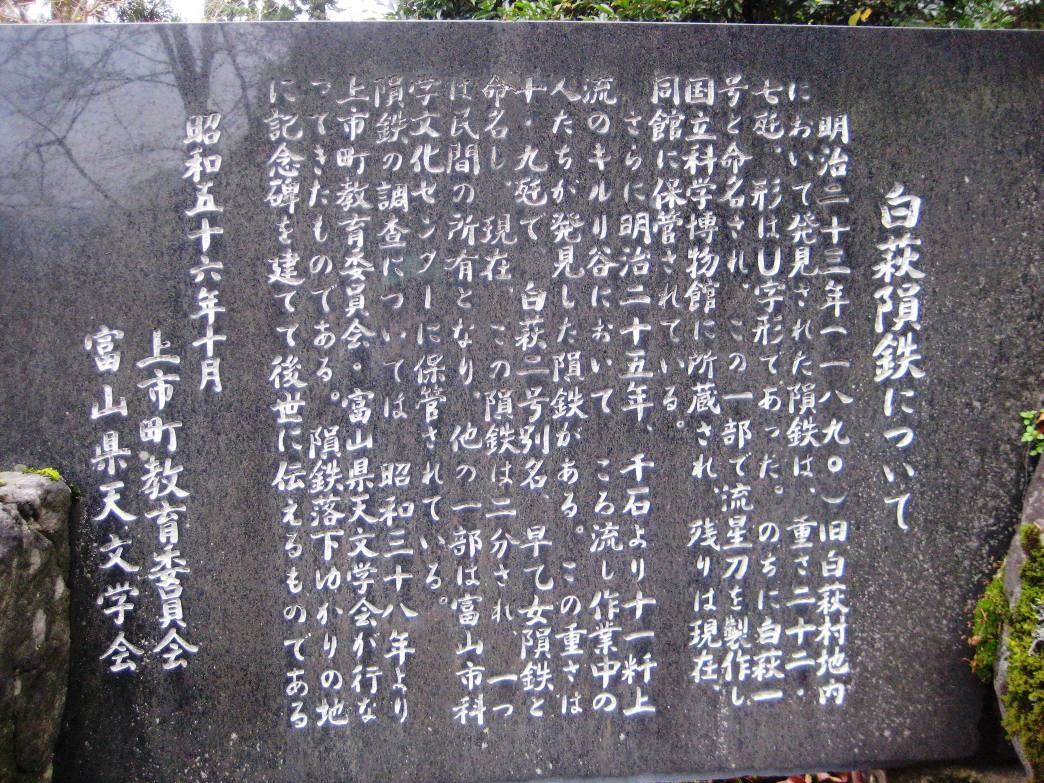 白萩隕鉄について
明治二十三年(一八九〇)旧白萩村地内
において発見された隕鉄は、重さ二十二・
七瓩、形はU字形であった。のちに白萩一
号と命名され、この一部で流星刀を製作し
国立科学博物館に所蔵され、残りは現在、
同館に保管されている。
さらに明治二十五年、千石より十一粁上
流のキルリ谷において ころ流し作業中の
人たちが発見した隕鉄がある。この重さは
十・九瓩で 白萩二号別名、早乙女隕鉄と
命名し、現在、この隕鉄は二分され、一つ
は民間の所有となり、他の一部は富山市科
学文化センターに保管されている。
隕鉄の調査については 昭和三十八年より
上市町教育委員会・富山県天文学会が行な
ってきたものである。隕鉄落下ゆかりの地
に記念碑を建てて後世に伝えるものである
昭和五十六年十月
上市町教育委員会
富山県天文学会